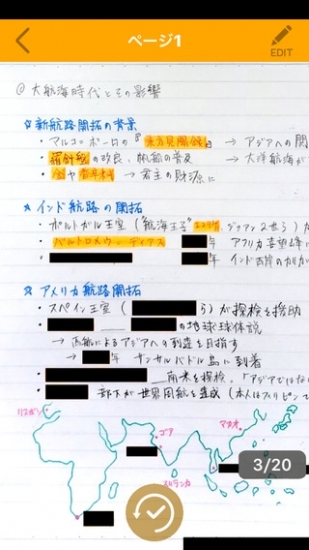 ページ1
EDIT
大航海時代とその影響
新航路開拓の背景
・マルコ=ポーロの『東方見聞録』 → アジアへの関
・羅針盤の改良、帆船の普及 → 大洋航海が
・金や香辛料 → 君主の財源に
インド航路の開拓
・ポルトガル王室("航海王子" ジョアン2世ら)が
・バルトロメウ=ディアス 年 アフリカ
年 インド西岸のカリカ
アメリカ航路開拓
・スペイン王室( ら)が探検を援助
の地球球体説
→ 西航によるアジアへの到達を目指す
→ 年 サンサルバドル島に到着
南米を探検、「アジアではな
部下が世界周航を達成(本人はフィリピンで
リスボン
ゴア
マカオ
スリランカ
3/20